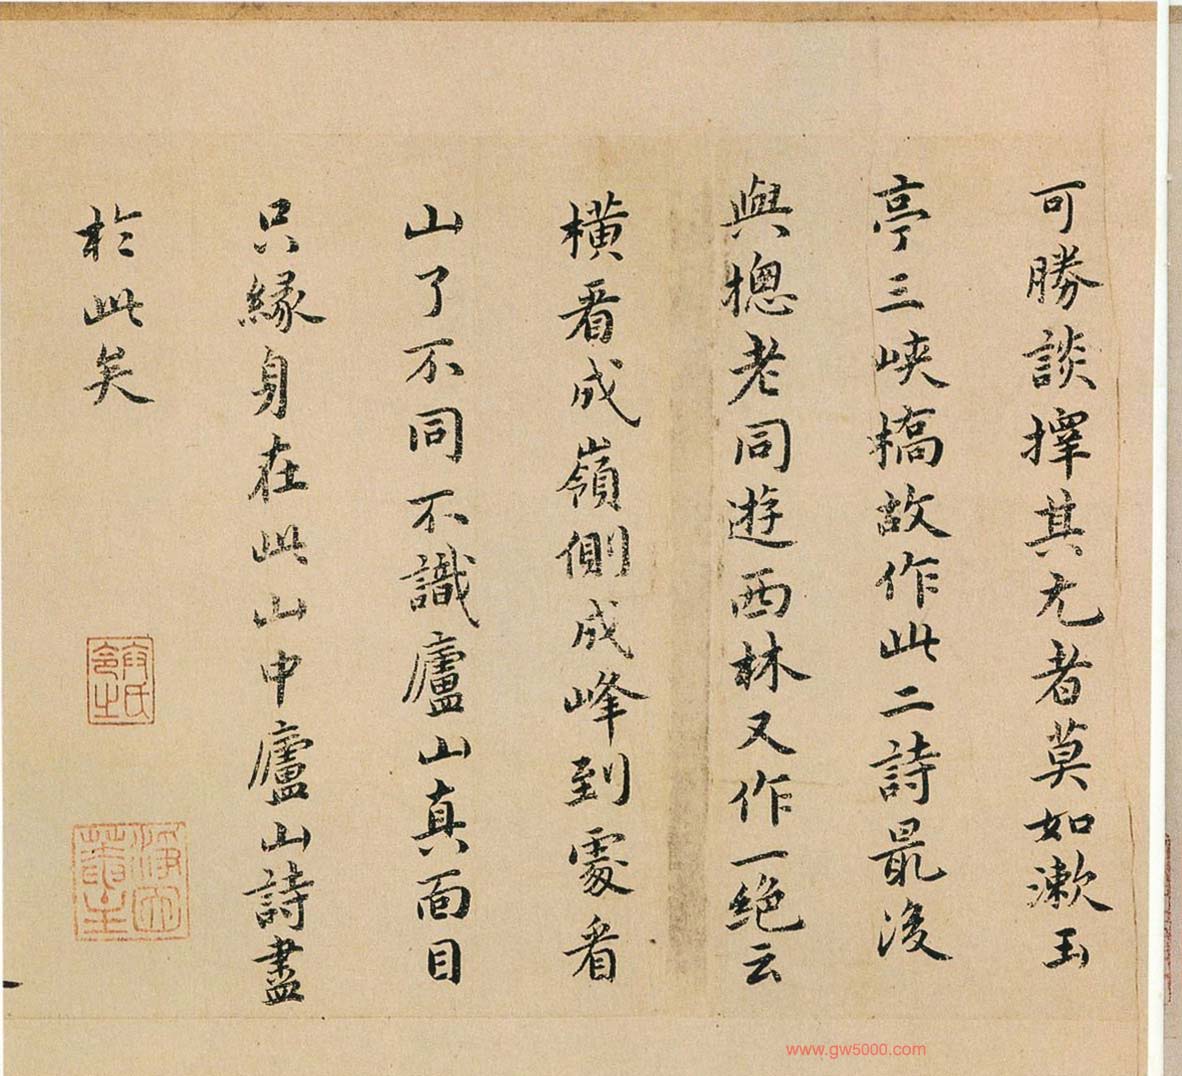 可勝談擇其尤者莫如漱玉
亭三峽橋故作此二詩最後
與摠老同遊西林又作一絶云
橫看成嶺側成峰到處看
山了不同不識廬山真面目
只緣身在此山中廬山詩盡
於此矣
www.gw5000.com